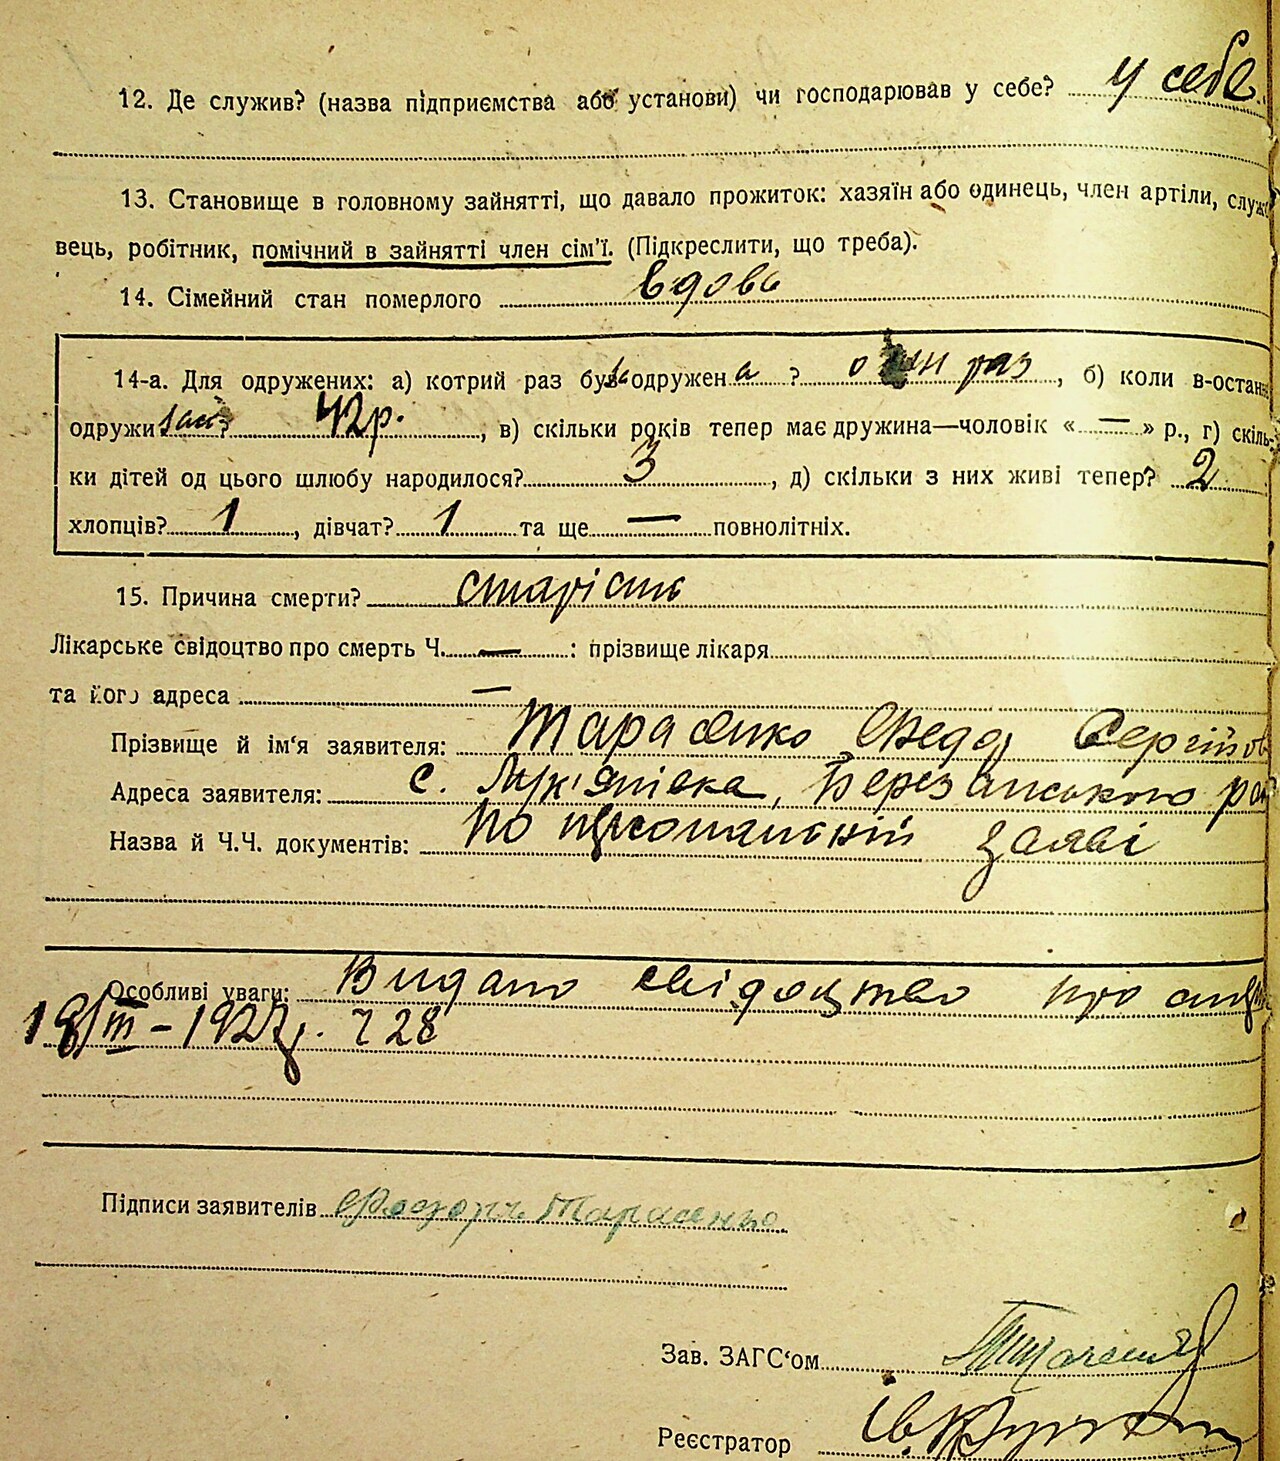 12. Де служив? (назва підприємства або установи) чи господарював у себе? у себе
13. Становище в головному зайнятті, що давало прожиток: хазяїн або одинець, член артіли, служ
вець, робітник, помічний в зайнятті член сім'ї. (Підкреслити, що треба).
14. Сімейний стан померлого вдова
14-а. Для одружених: а) котрий раз був одружена? один раз, б) коли в-остан
одружи 42 р., в) скільки років тепер має дружина—чоловік «—» р., г) скіль-
ки дітей од цього шлюбу народилося? 3, д) скільки з них живі тепер? 2
хлопців? 1, дівчат? 1 та ще — повнолітніх.
15. Причина смерти? старість
Лікарське свідоцтво про смерть Ч. — : прізвище лікаря
та його адреса —
Прізвище й ім'я заявителя: Тарасенко Федор Сергійов
Адреса заявителя: с. Лук'янівка, Березанського рай
Назва й Ч.Ч. документів: по заяві
Особливі уваги: Видано свідоцтво про
18/III – 1927 р. Ч 28
Підписи заявителів Тарасенко
Зав. ЗАГС'ом
Реєстратор